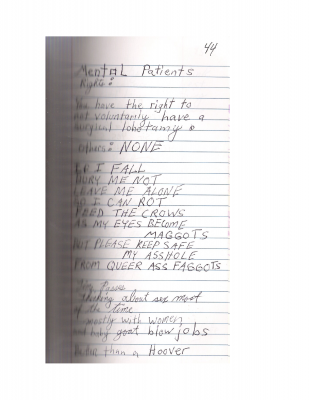 44
Mental Patients
Rights:
You have the right to
not voluntarily have a
surgical lobotamy.
others: NONE
IF I FALL
BURY ME NOT
LEAVE ME ALONE
SO I CAN ROT
FEED THE CROWS
AS MY EYES BECOME
MAGGOTS
BUT PLEASE KEEP SAFE
MY ASSHOLE
FROM QUEER ASS FAGGOTS
thinking about sex most
of the time
mostly with women
and baby goat blow jobs
than a Hoover